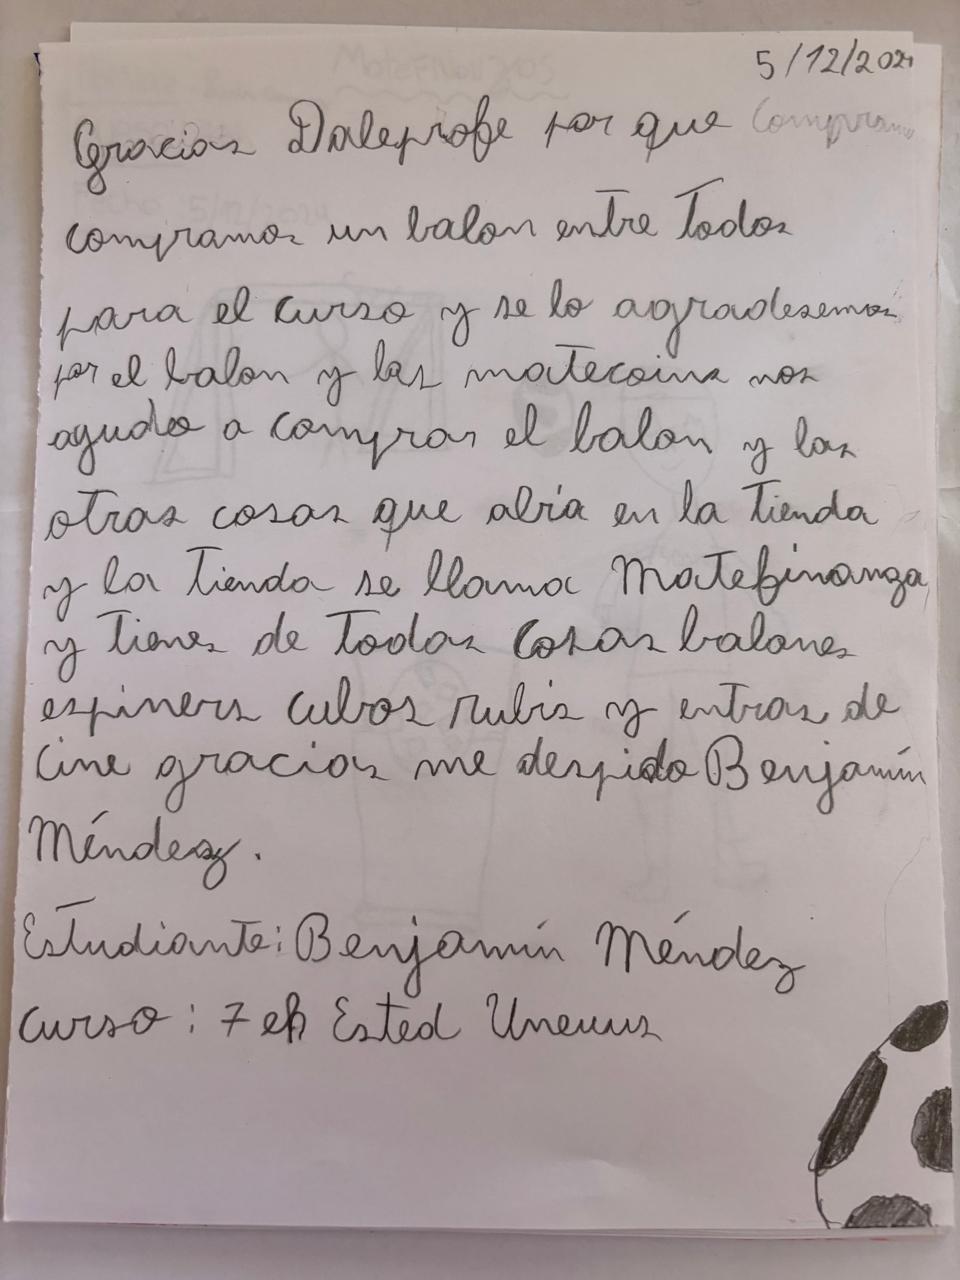 5/12/202
Gracias Daleprofe por que
compramos un balon entre Todos
para el curso y se lo agradesemos
por el balon y las matecoins nos
agudo a compras el balon y las
otras cosas que abia en la Tienda
y la Tienda se llama Matefinanza
y Tienes de Todas Cosas balones
espiners cubos rubis y entras de
Cine gracias me despido Benjamín
Méndez.
Estudiante: Benjamín Méndez
curso: 7